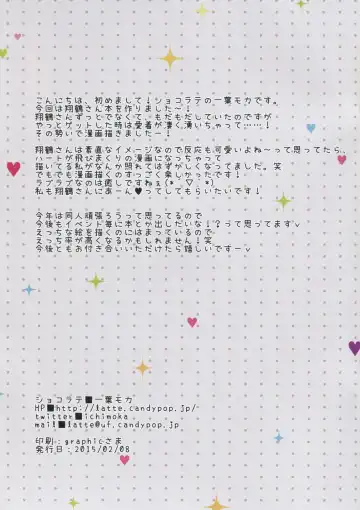 こんにちは、初めまして！ショコラテの一葉モカです。
今回は翔鶴さん本を作りました～！
翔鶴さんずっとでなくて、もだもだしていたのですが
やっとゲットした時は愛着が凄く湧いちゃって……！
その勢いで漫画描きましたー！
翔鶴さんは素直なイメージなので反応も可愛いよね～って思ってたら、
ハートが飛びまくりの漫画になっちゃって
描いてる私がなんか照れてはずかしくなってました。笑
でもでも漫画描くのすっごく楽しかったです！
ラブラブなのは癒しですねぇ(*´▽｀*)
私も翔鶴さんにあーん♥ってしてもらいたいです！
今年は同人頑張ろうって思ってるので
今後もイベント毎に本とか出したいな！？って思ってますv
えっちな絵を描くのにはまっているので
えっち率が高くなるかもしれません！笑
今後ともお付き合いいただけたら嬉しいですーv
ショコラテ■一葉モカ
HP■http://latte.candypop.jp/
twitter■ichimoka
mail■latte@uf.candypop.jp
印刷：graphicさま
発行日：2015/02/08